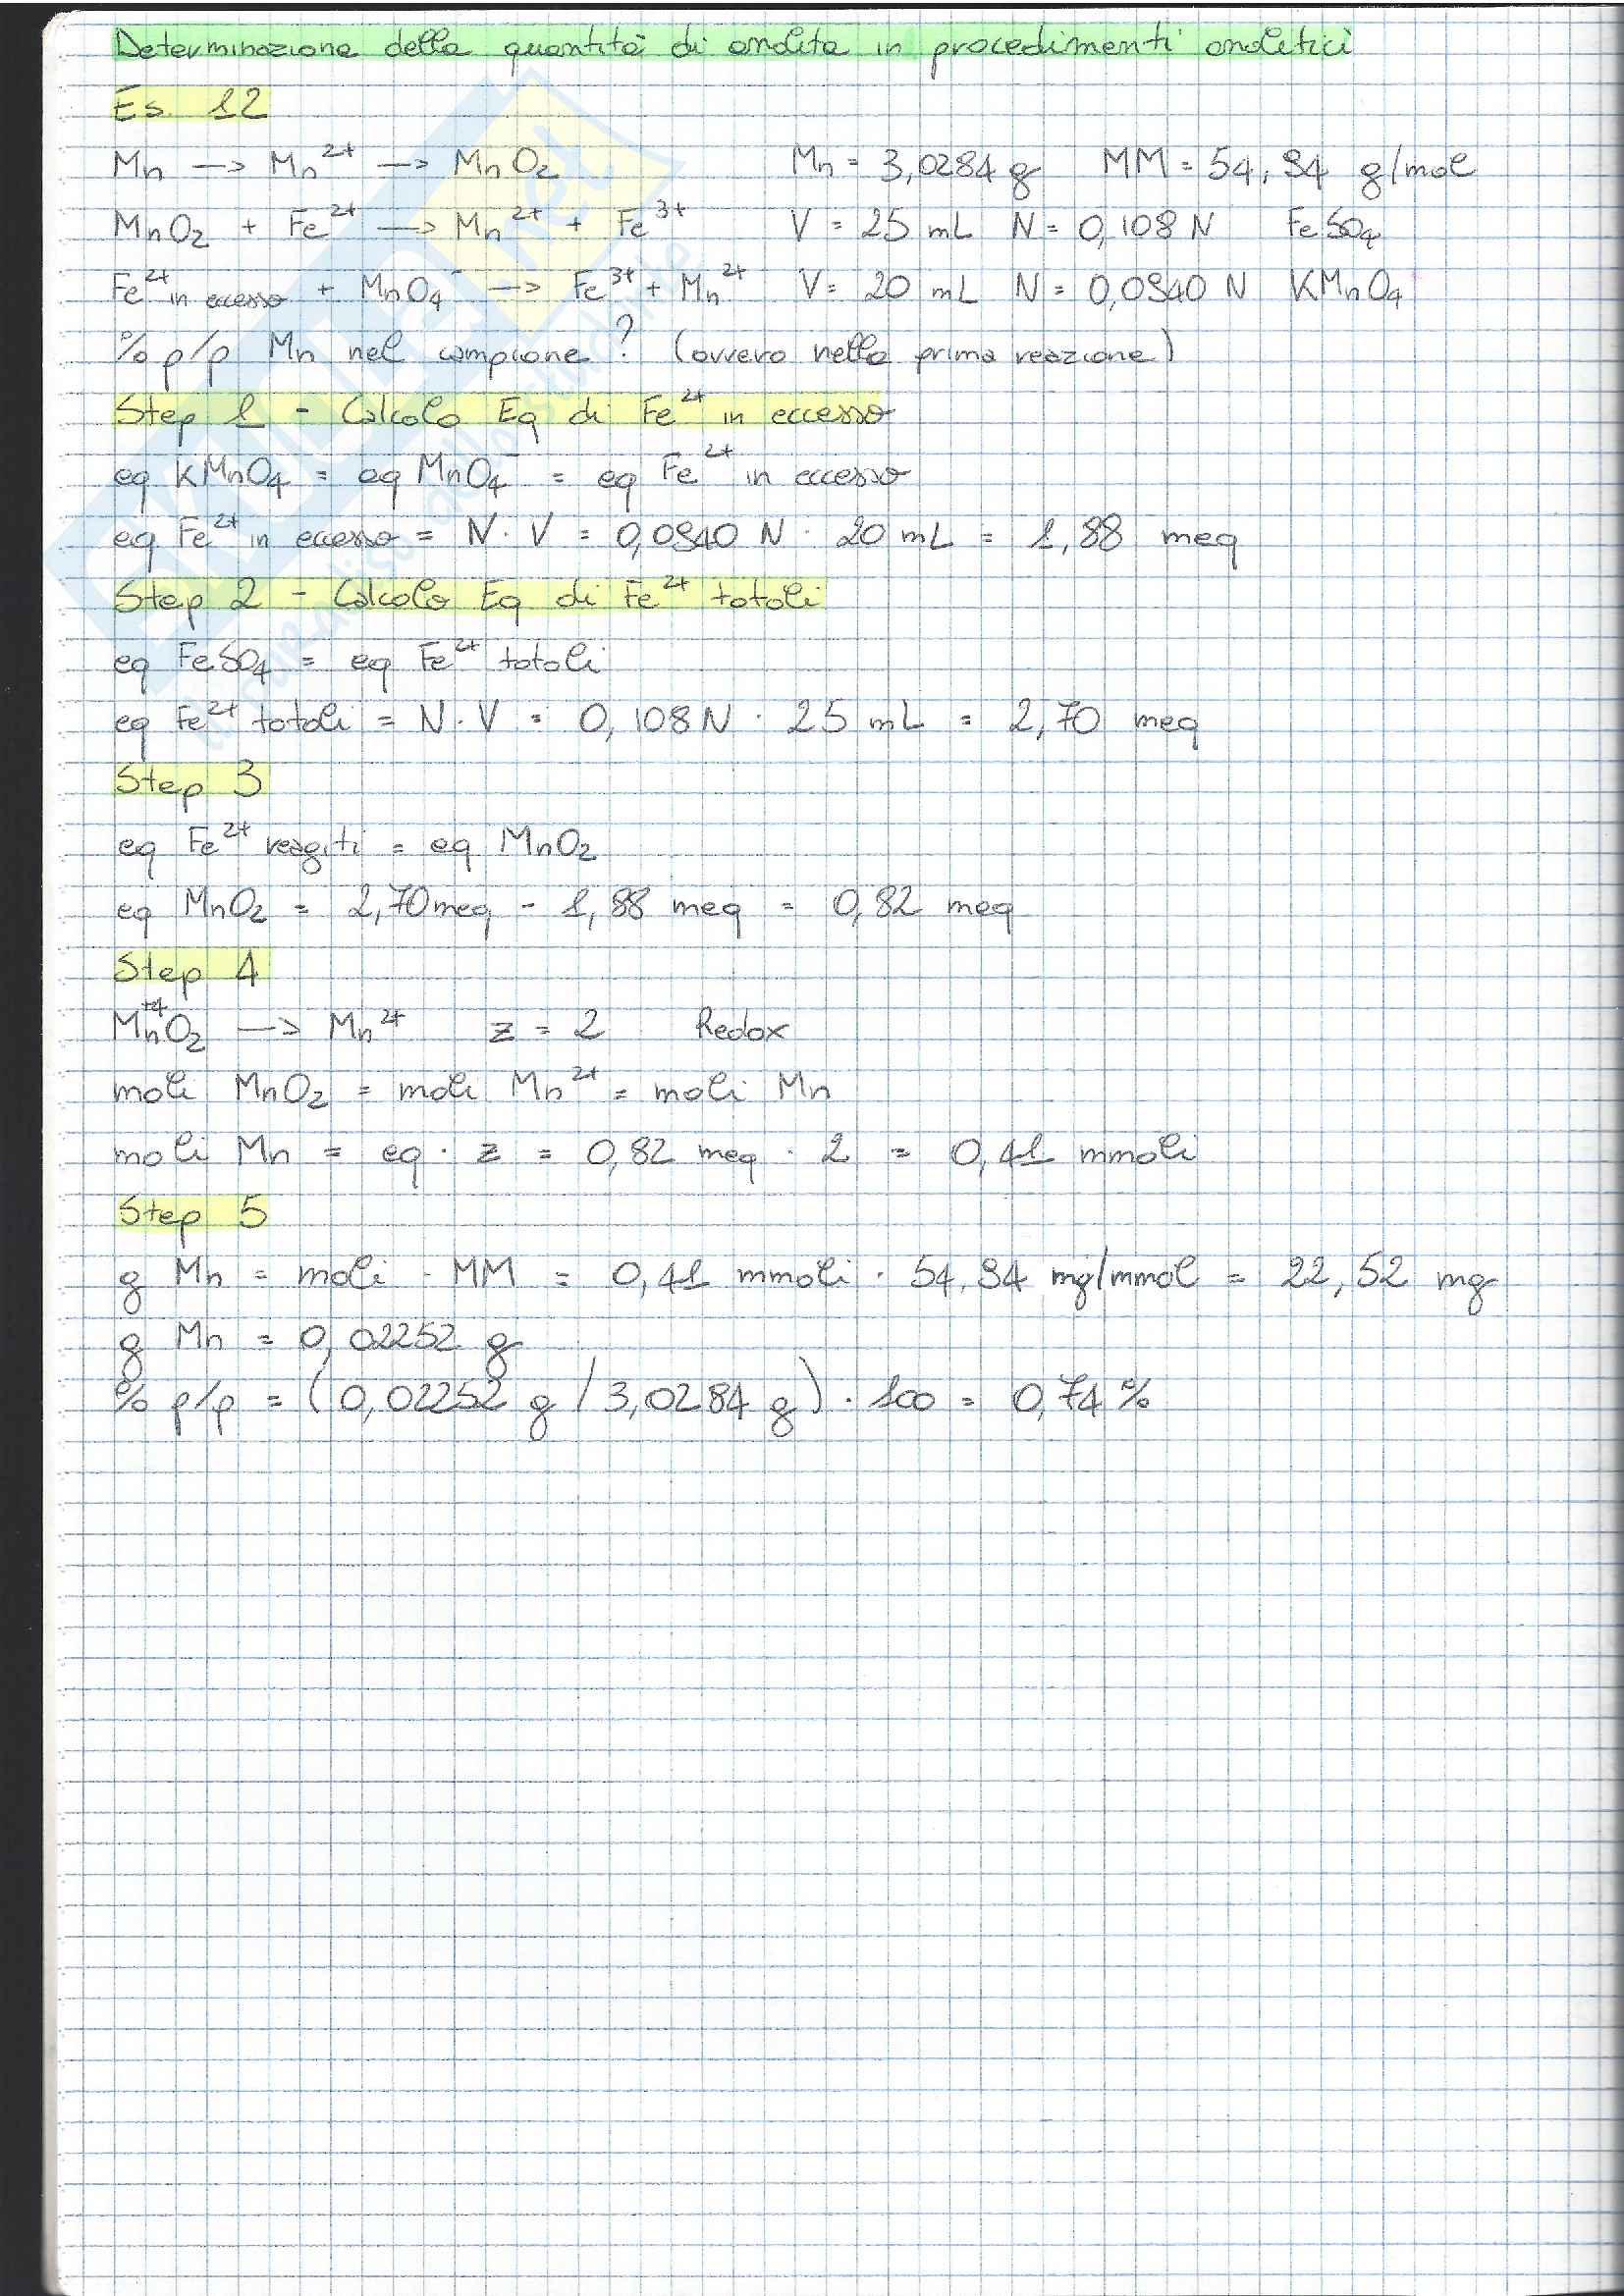 Determinazione della quantità di analita in procedimenti analitici
Es. 12
Mn —> Mn²⁺ —> MnO₂ Mn = 3,0284 g MM = 54,94 g/mol
MnO₂ + Fe²⁺ —> Mn²⁺ + Fe³⁺ V = 25 mL N = 0,108 N FeSO₄
Fe²⁺ in eccesso + MnO₄⁻ —> Fe³⁺ + Mn²⁺ V = 20 mL N = 0,0940 N KMnO₄
% p/p Mn nel campione? (ovvero nella prima reazione)
Step 1 - Calcolo Eq di Fe²⁺ in eccesso
eq KMnO₄ = eq MnO₄⁻ = eq Fe²⁺ in eccesso
eq Fe²⁺ in eccesso = N · V = 0,0940 N · 20 mL = 1,88 meq
Step 2 - Calcolo Eq di Fe²⁺ totali
eq FeSO₄ = eq Fe²⁺ totali
eq Fe²⁺ totali = N · V = 0,108 N · 25 mL = 2,70 meq
Step 3
eq Fe²⁺ reagiti = eq MnO₂
eq MnO₂ = 2,70 meq - 1,88 meq = 0,82 meq
Step 4
+4
MnO₂ —> Mn²⁺ z = 2 Redox
moli MnO₂ = moli Mn²⁺ = moli Mn
moli Mn = eq · z = 0,82 meq · 2 = 0,41 mmoli
Step 5
g Mn = moli · MM = 0,41 mmoli · 54,94 mg/mmol = 22,52 mg
g Mn = 0,02252 g
% p/p = (0,02252 g / 3,0284 g) · 100 = 0,74 %